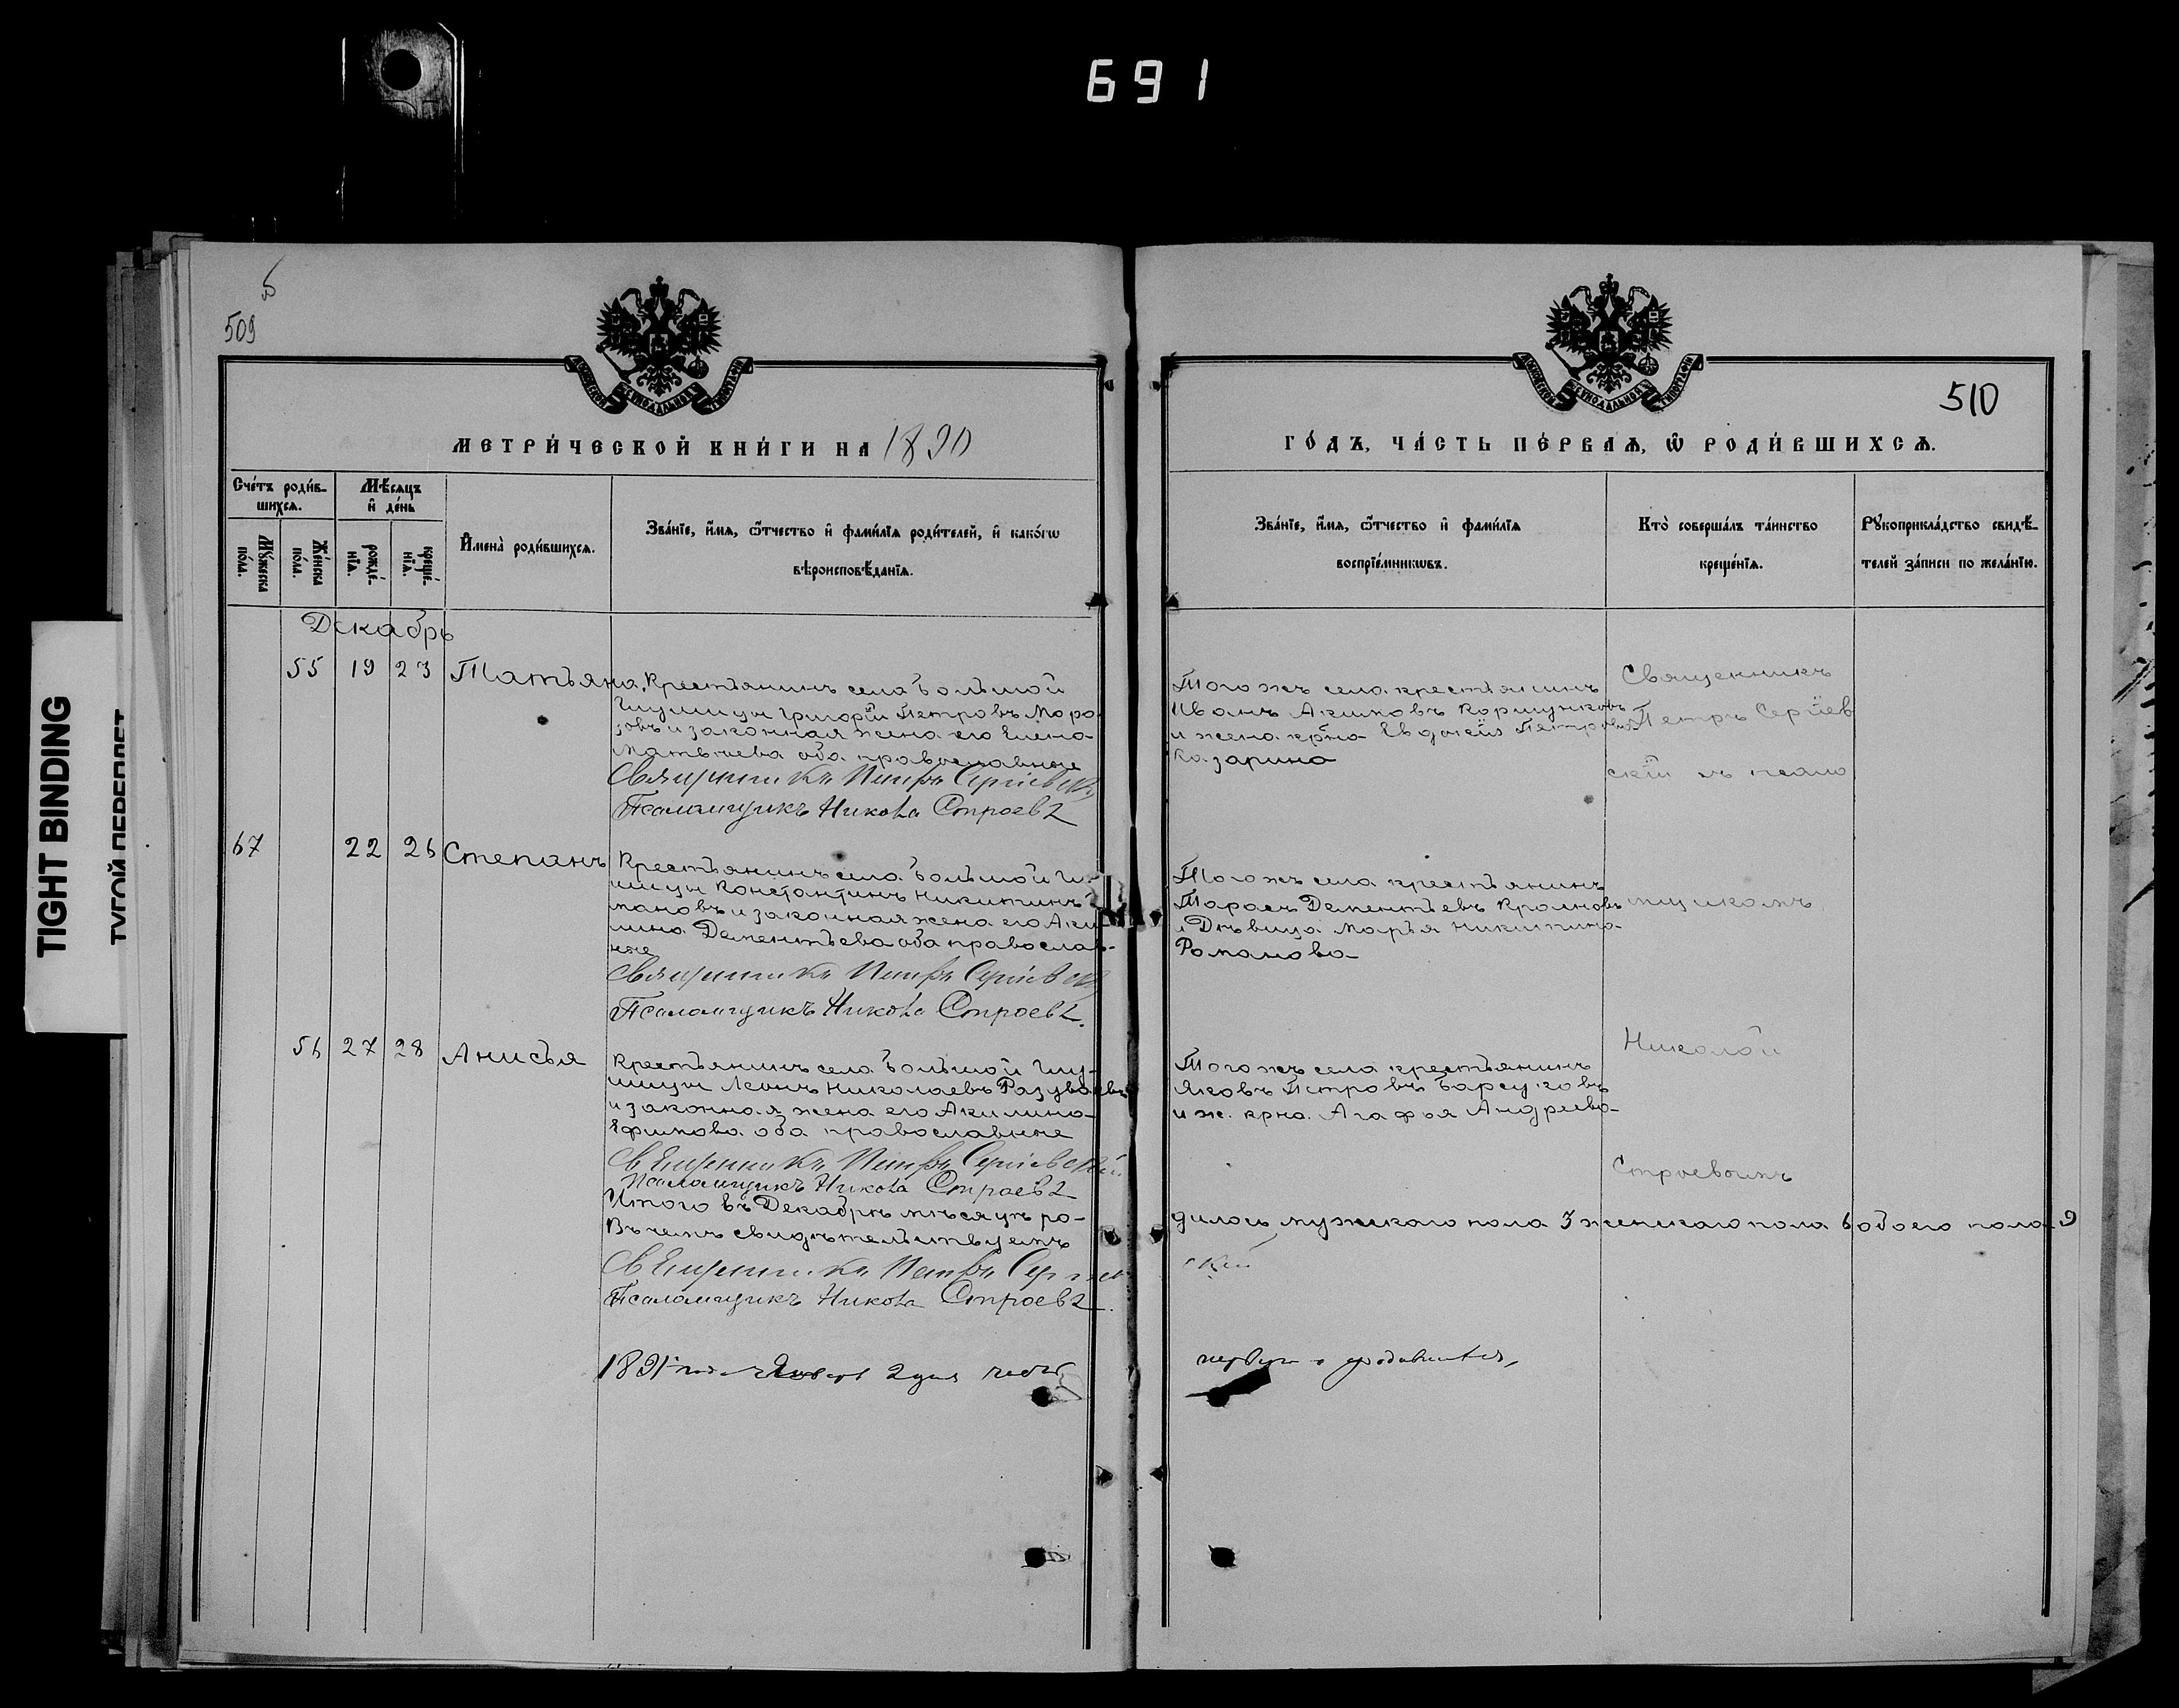 691
509
510
МЕТРИ́ЧЕСКОЙ КНИ́ГИ НА 1890
ГО́ДЪ, ЧА́СТЬ ПЕ́РВАѦ, Ѡ҆ РОДИ́ВШИХСѦ.
Сче́тъ роди́в-
шихсѧ.
Мѣ́сѧцъ
и҆ де́нь
Мꙋ́жеска
по́ла.
Же́нска
по́ла.
рожде́-
нїѧ.
креще́-
нїѧ.
И҆мена̀ роди́вшихсѧ.
Зва́нїе, и҆́мѧ, ѻ҆́тчество и҆ фами́лїѧ роди́телей, и҆ како́гѡ
вѣроисповѣ́данїѧ.
Зва́нїе, и҆́мѧ, ѻ҆́тчество и҆ фами́лїѧ
воспрїе́мникѡвъ.
Кто̀ соверша́лъ та́инство
креще́нїѧ.
Рꙋкоприкла́дство свидѣ́-
телей за́писи по жела́нїю.
Декабрь
55 19 23 Татьяна
Крестьянинъ села Большой
Григорій Петровъ Моро
зовъ и законная жена его Елена
Матвѣева оба православные
Священникъ Петръ Сергіевск
Псаломщикъ Никола Строевъ
Того жъ села крестьянинъ
Иванъ Акимовъ Коршунковъ
и жена крна Евдокія Петрова
Казарина
Священникъ
Петръ Сергіев
скій съ псало
67 22 26 Степанъ
Крестьянинъ села Большой
Константинъ Никитинъ
мановъ и законная жена его Аку
лина Дементьева оба православ-
ные
Священникъ Петръ Сергіевск
Псаломщикъ Никола Строевъ
Того жъ села крестьянинъ
Тарасъ Дементьевъ Кроиновъ
и Дѣвица Марья Никитина
Романова
мщикомъ
56 27 28 Анисья
Крестьянинъ села Большой
Леонъ Николаевъ Разуваевъ
и законная жена его Акилина
Ефимова оба православные
Священникъ Петръ Сергіевскій
Псаломщикъ Никола Строевъ
Того жъ села крестьянинъ
Яковъ Петровъ Барсуковъ
и ж. крна Агафья Андреева
Николой
Строевымъ
Итого въ Декабрѣ мѣсяцѣ ро-
дилось мужскаго пола 3 женскаго пола 6 обоего пола 9
Въ чемъ свидѣтельствуемъ
Священникъ Петръ Сергіев
скій
Псаломщикъ Никола Строевъ
1891 года Января 2 дня
TIGHT BINDING
ТУГОЙ ПЕРЕПЛЕТ